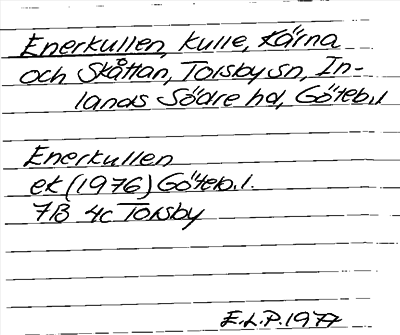 Enerkullen, kulle, Kärna
och Skåttan, Torsby sn, In-
lands Södre hd, Göteb.l
Enerkullen
ek (1976) Göteb.l.
7B 4c Torsby
E.L.P. 1977